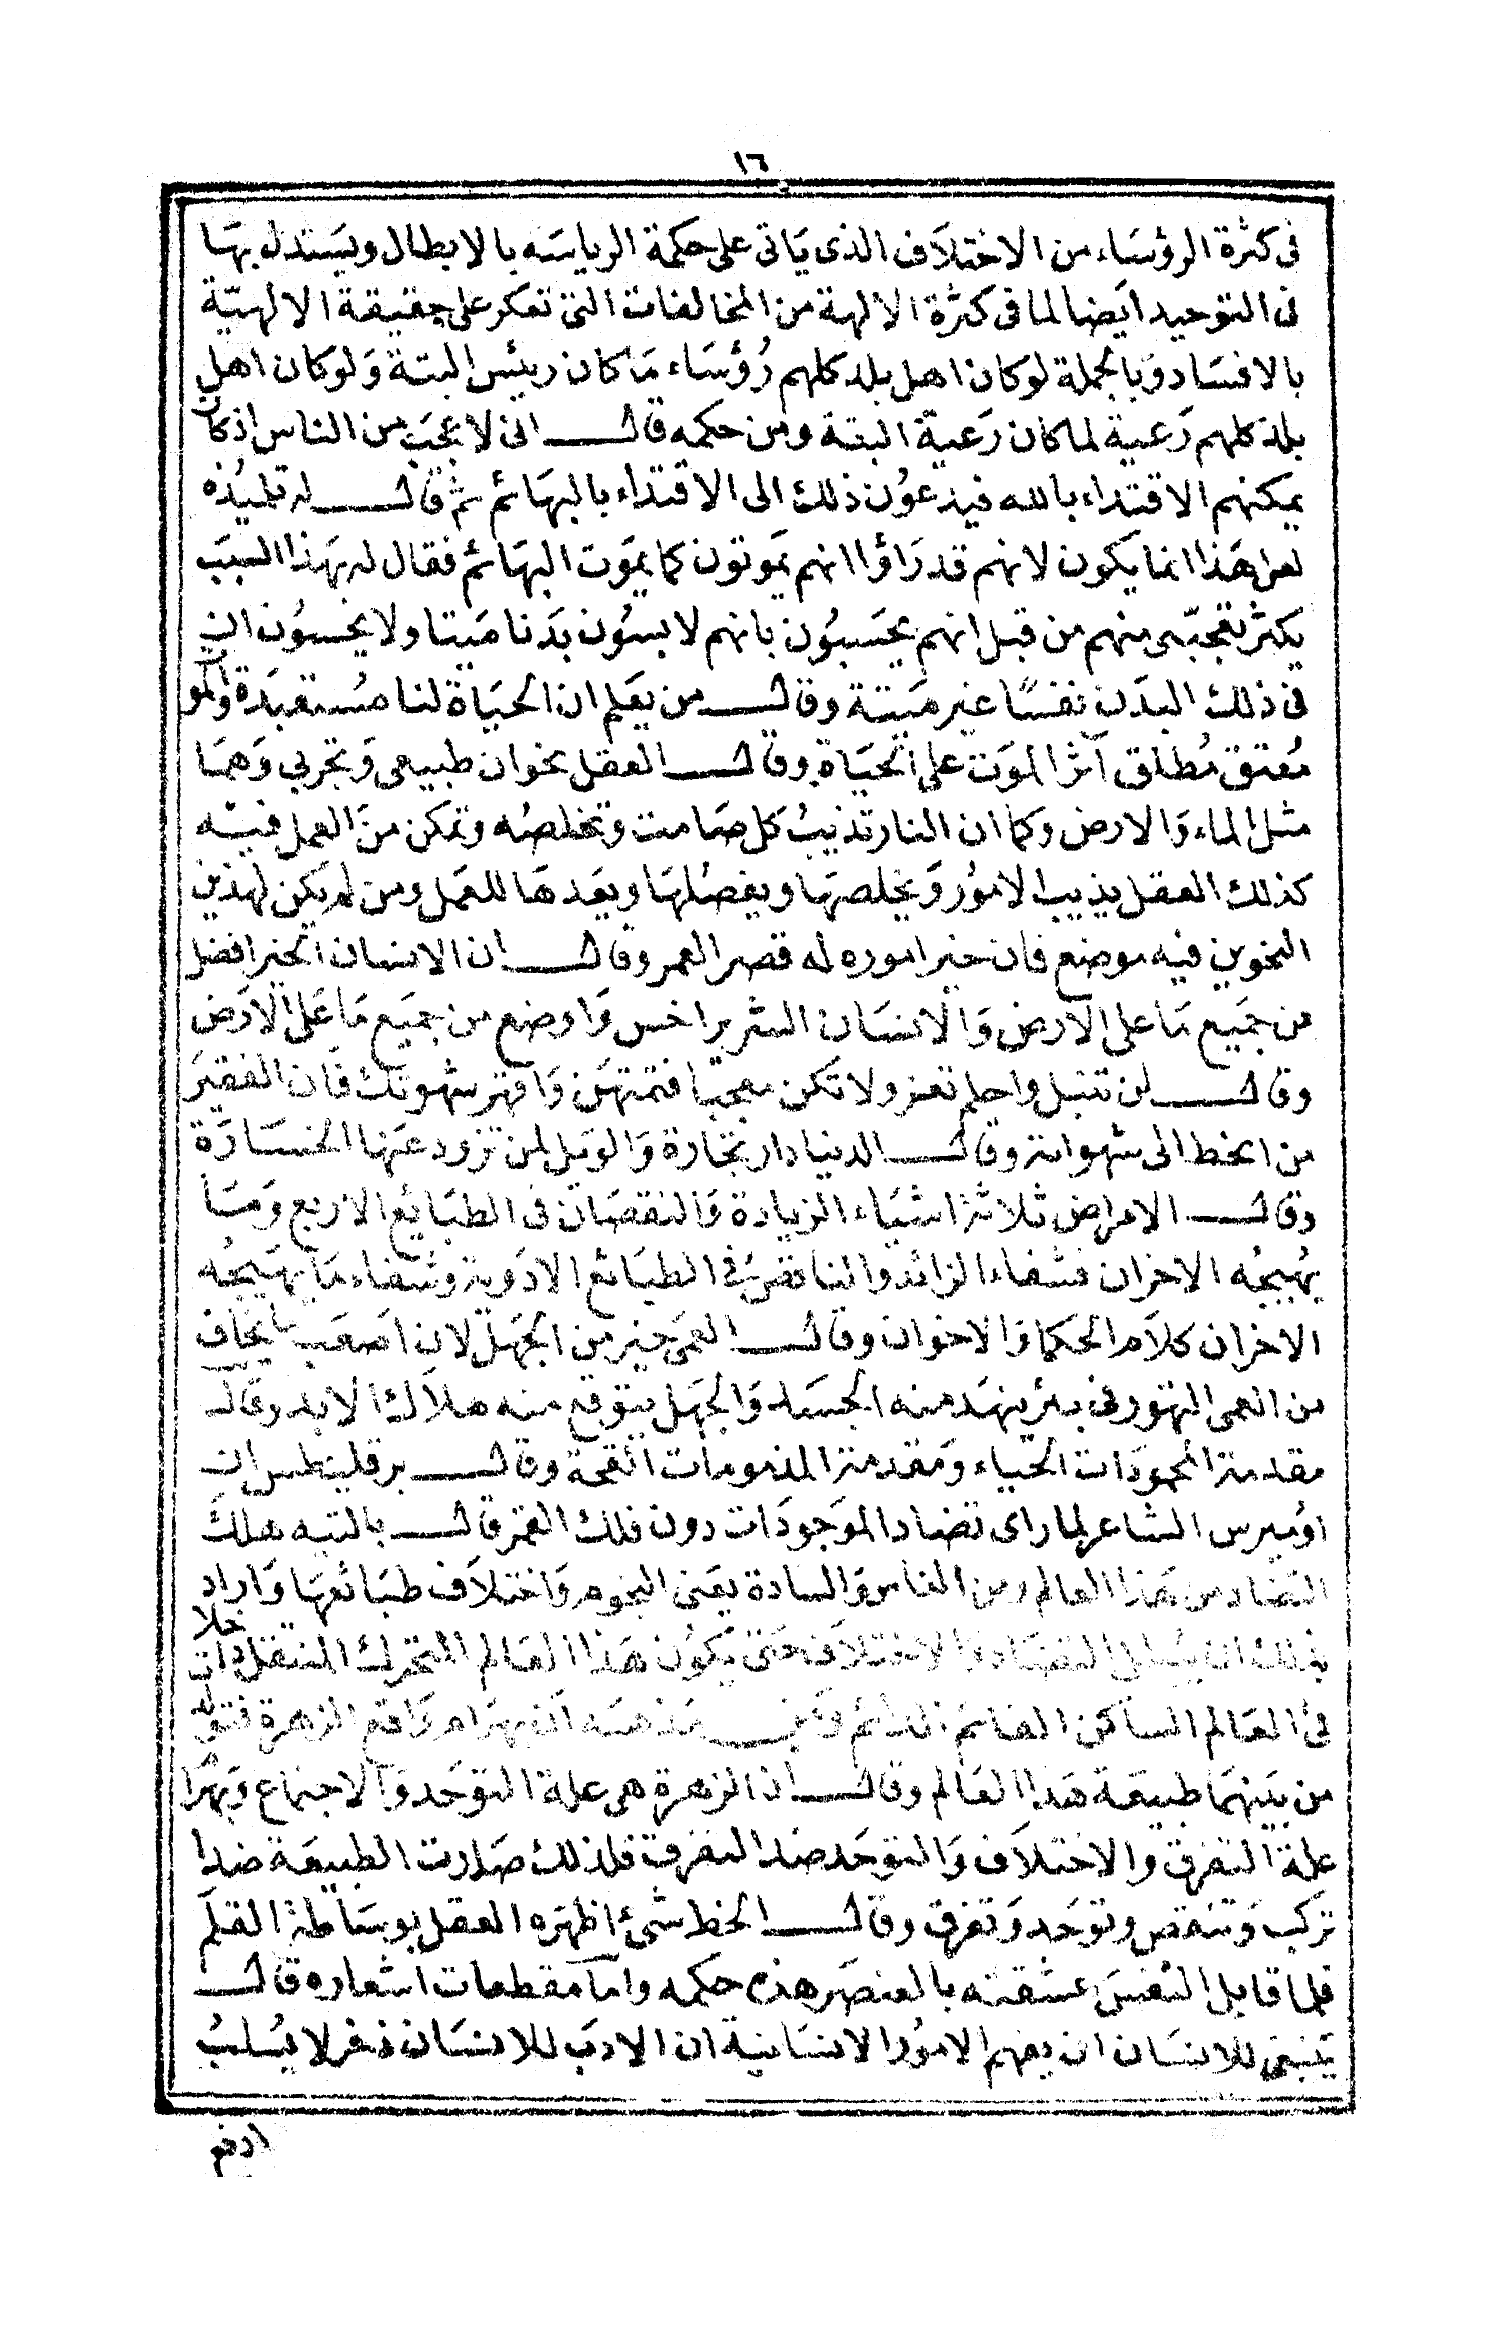 ١٦
فى كثرة الرؤسَاء من الاختلاَف الذى يَاتى على حكمة الرياسَه بالابطال ويسَتدل بهَا
فى التوحيد ايَضا لما فى كثرة الالهة من المخالفات التى تعكر على حقيقة الالهيّة
بالافسَاد وَبالجملة لو كان اهل بلد كلهم رُؤسَاء مَا كان رييَس البتة وَلو كان اهل
بلد كلهم رَعية لما كان رَعية البتة ومن حكمه قال انى لاعجَب من الناس اذ كان
يمكنهم الاقتداء بالله فيدعوُن ذلك الى الاقتداء بالبهَائم ثم قال له تلميُذه
لعل هَذا انما يكون لانهم قد رَاوْا انهم يمَوتون كما يموَت البهَائم فقال له بهَذا السبَب
يكثر تعجبّى منهم من قبل انهم يحسَبوُن بانهم لابسوُن بدَنا ميَتا ولا يحسبوُن ان
فى ذلك البدَن نفسًا غير ميَتة وقال من يعَلم ان الحيَاة لنا مسُتعبدَة والمو
مُعتق مُطلق آثر الموَت على الحيَاة وقال العقل نحوان طبيعى وَتجربى وَهمَا
مثل الماء وَالارض وكما ان النار تذيبُ كل صَامت وتخلصُه وتمكن منَ العمل فيَه
كذلك العقل يذيب الاموُر وَيخلصهَا ويفصُلهَا ويعَدهَا للعمَل ومن لم يكن لهذين
النحوين فيه موضع فان خير اموره له قصر العمر وقال ان الانسان الخير افضل
من جمَيع مَا على الارض وَالانسَان الشرير اخس وَاوضع من جميَع مَا عَلى الارَض
وقال لن تنبل واحلم تعز ولا تكن معجبا فتمتهَن وَاقهر شهوتك فاَن الفقيرَ
من انحط الى شهواته وقال الدنيا دار تجارة وَالويَل لمن تزود عنَها الخسَارَة
وقال الامراض ثلاثة اشيَاء الزيادة وَالنقصَان فى الطبَائع الاربع وَمَا
يهُيجُه الاحزان فشفاء الزائد والناقصُ فى الطبَائع الادَوية وشفاء مَا يهَيجُه
الاحزان كلاَم الحكما وَالاخوان وقال العمَى خير من الجهَل لان اصعَب ما يخاف
من العمى التهور فى بئر ينهَد منه الجسَد وَالجهَل يتوقع منه هلاَك الابد وقال
مقدمة المحموَدَات الحيَاء وَمقَدمة المذمومات القحة وقال برقليطس ان
اومُيرس الشاعر لما راى تضاد الموَجودَات دون فلك القمر قال ياليته هلك
التضاد من هَذا العالم ومن الناس وَالسادة يعَنى النجوم وَاختلاَف طبَائعهَا وَاراد
بذلك ان يُبطل التضَاد وَالاختلاَف حتَى يكوُن هَذا العَالم المتحرك المنتقل داخلا
فى العَالم الساكن القائم الدائم وَمن مَذهبَه ان بهرَام وَاقع الزهرة فتولد
من بيَنهمَا طبيعَة هَذا العَالم وقال ان الزهرة هى علة التوحَد وَالاجتماع وَبهرَا
علة التفرق والاختلاَف وَالتوحَد ضد التفرق فلذلك صَارت الطبيعَة ضدا
تركَب وَتنقص وتوحَد وَتفرق وقال الخط شىء اظهرَه العقل بوسَاطة القلَم
فلما قابل النفسَ عشقته بالعنصَر هذه حكمه واما مقطعات اشعاره قال
يَنبَغى للانسَان ان يفهم الاموُر الانسَانية ان الادَب للانسَان ذخر لا يسُلبُ
ادفع